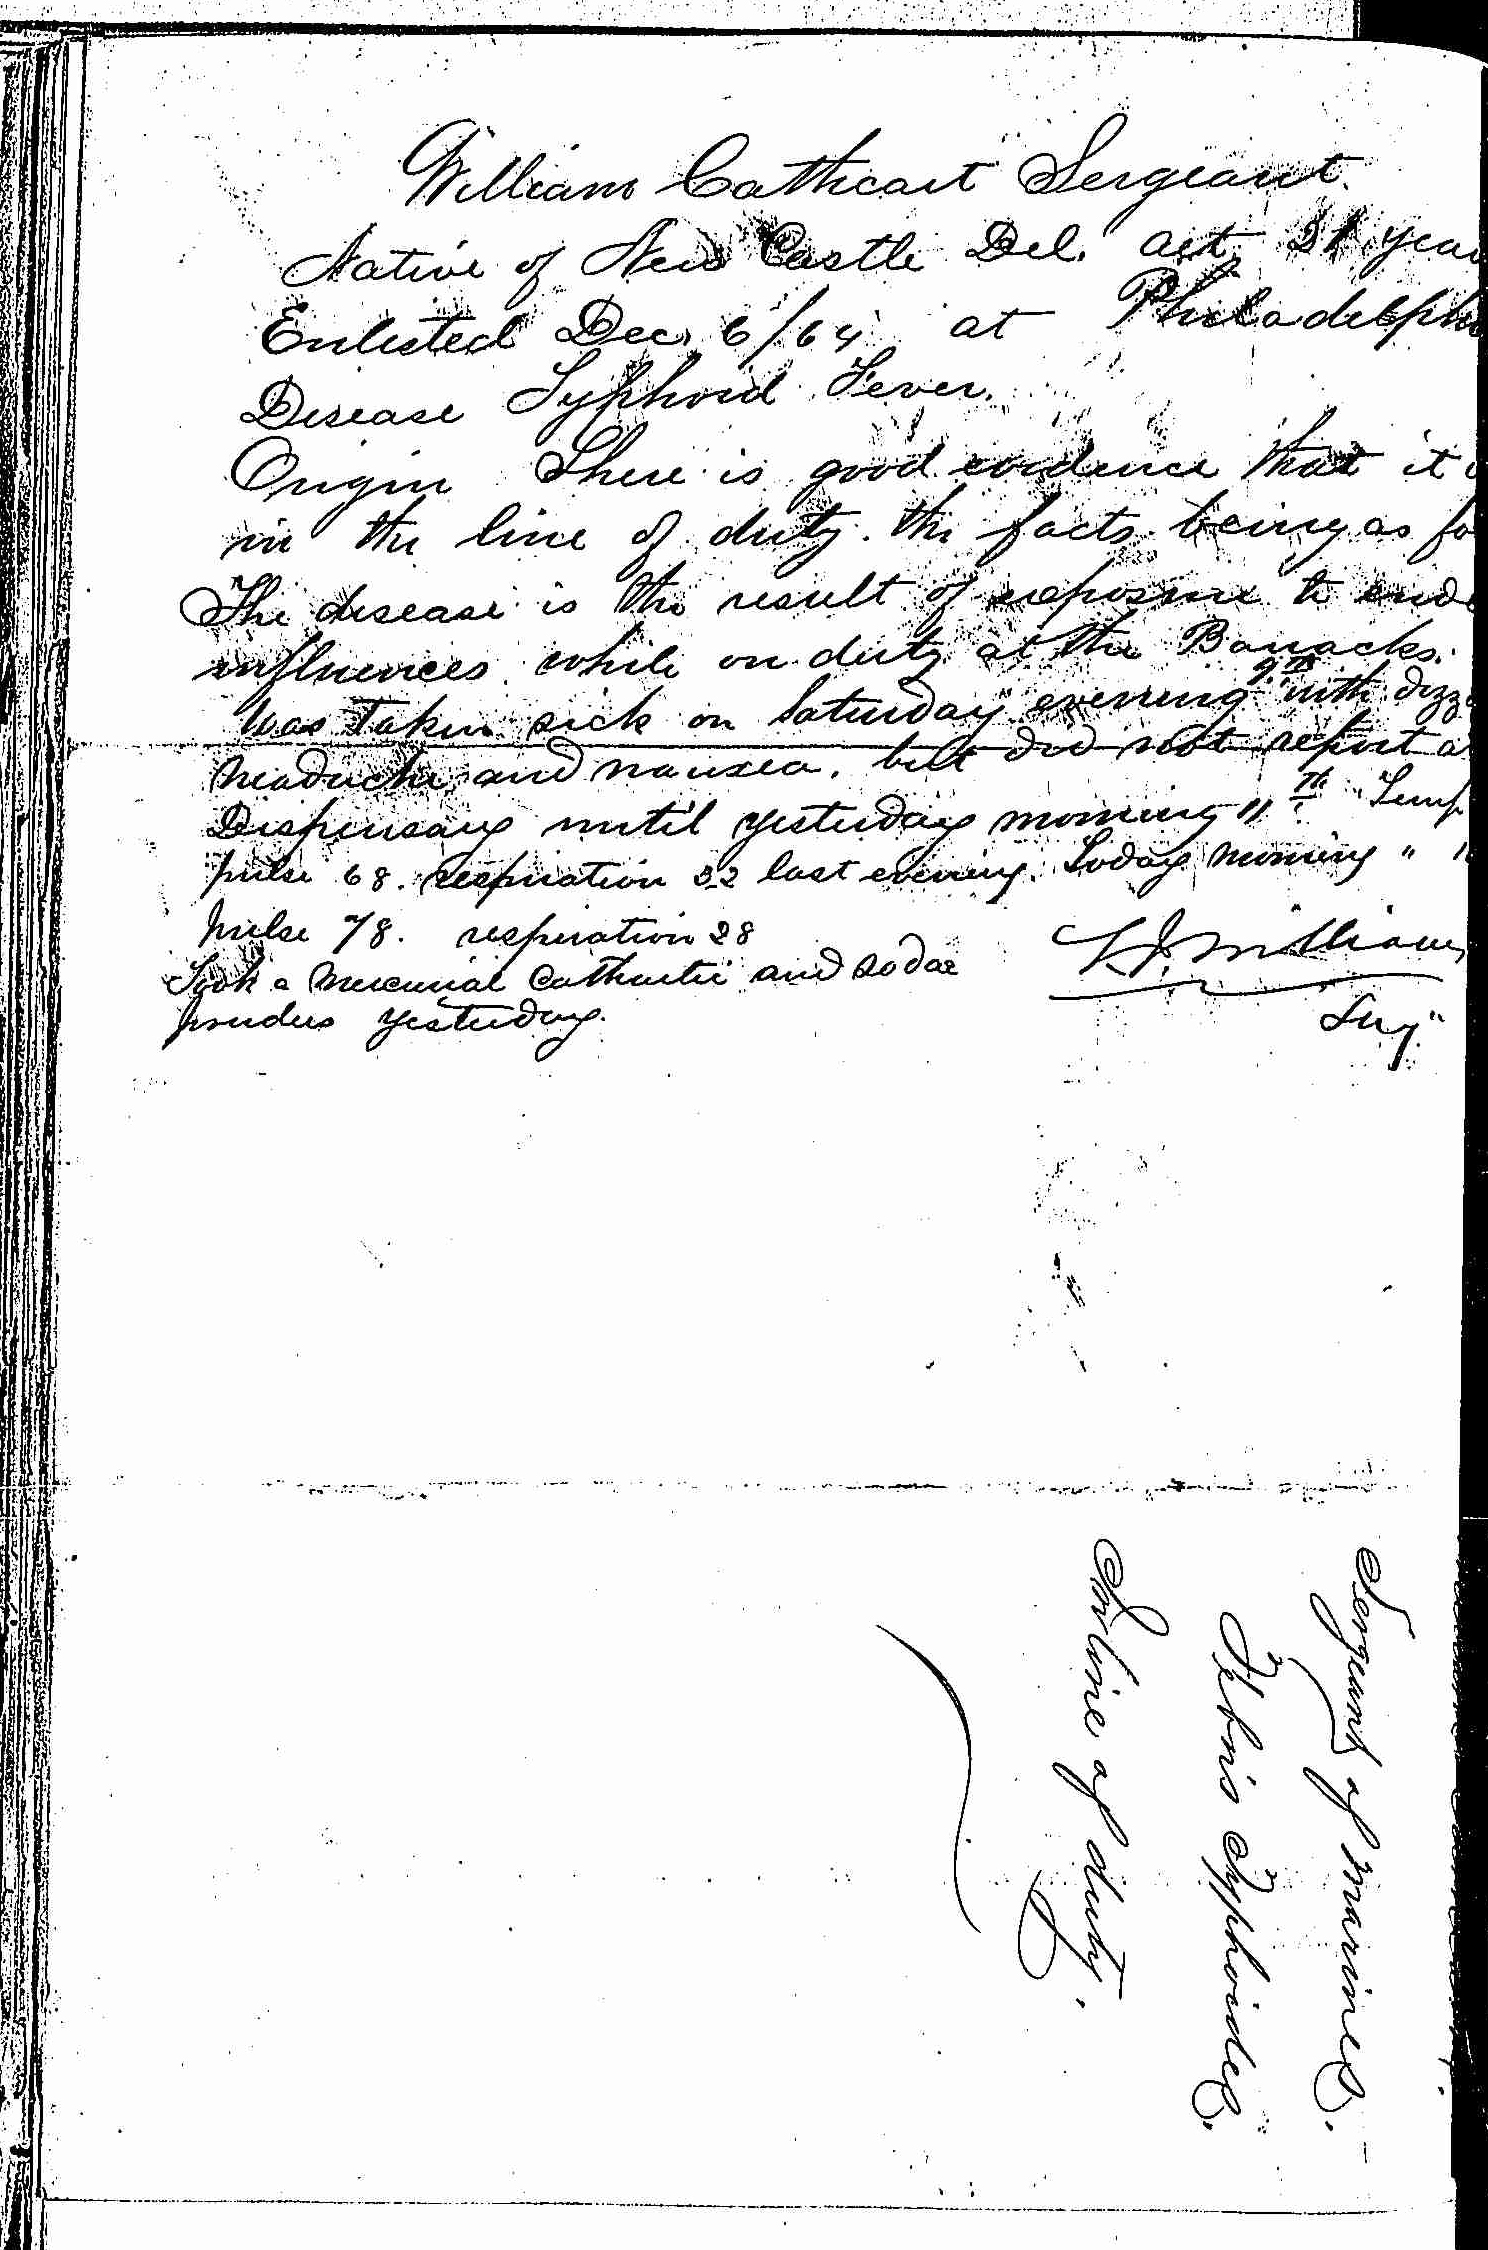 William Cathcart Sergeant.
Native of New Castle Del. aet 31 year
Enlisted Dec. 6/64 at Philadelphi
Disease Typhoid Fever.
Origin There is good evidence that it
in the line of duty. the facts being as fo
The disease is the result of exposure to ende
influences while on duty at the Barracks.
Was taken sick on Saturday evening 9th with dizz
headache and nausea. but did not report a
Dispensary until yesterday morning 11th. Temp
pulse 68. respiration 32 last evening. Today morning "
pulse 78. respiration 28
Took a mercurial Cathartic and sodae
powders yesterday.
Williams
Surg"
Sergeant of Marines.
Febris Typhoides.
In line of duty.